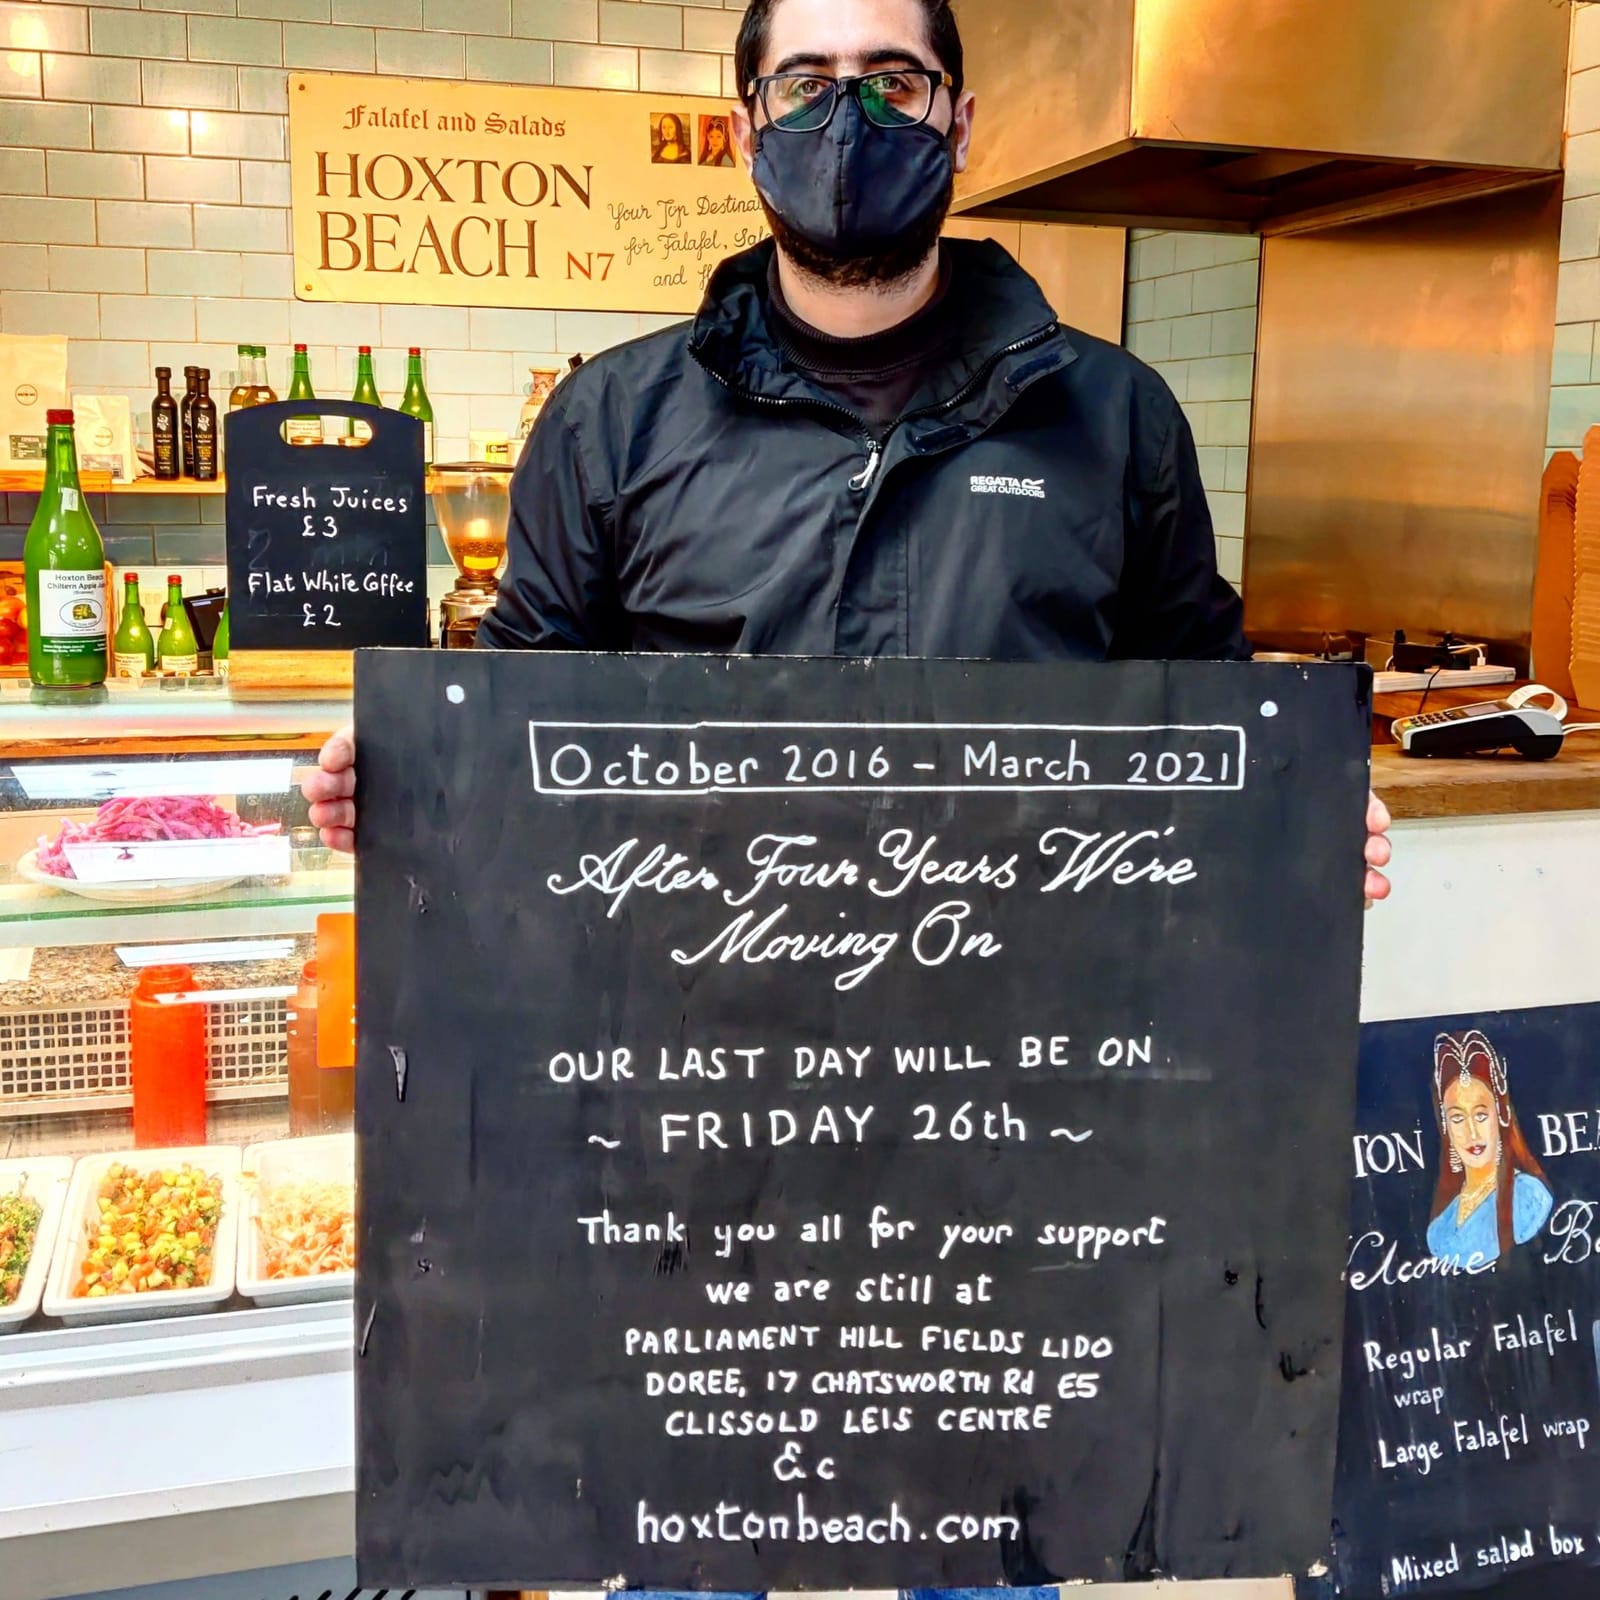 Falafel and Salads
HOXTON
BEACH N7
Your Top
for Falafel,
and
Fresh Juices
£3
Flat White Coffee
£2
Hoxton Beach
Chiltern Apple
REGATTA
GREAT OUTDOORS
October 2016 - March 2021
After Four Years We're
Moving On
OUR LAST DAY WILL BE ON
~ FRIDAY 26th ~
Thank you all for your support
we are still at
PARLIAMENT HILL FIELDS LIDO
DOREE, 17 CHATSWORTH Rd E5
CLISSOLD LEIS CENTRE
&c
hoxtonbeach.com
TON BEA
elcome
Regular Falafel
wrap
Large Falafel wrap
Mixed salad box